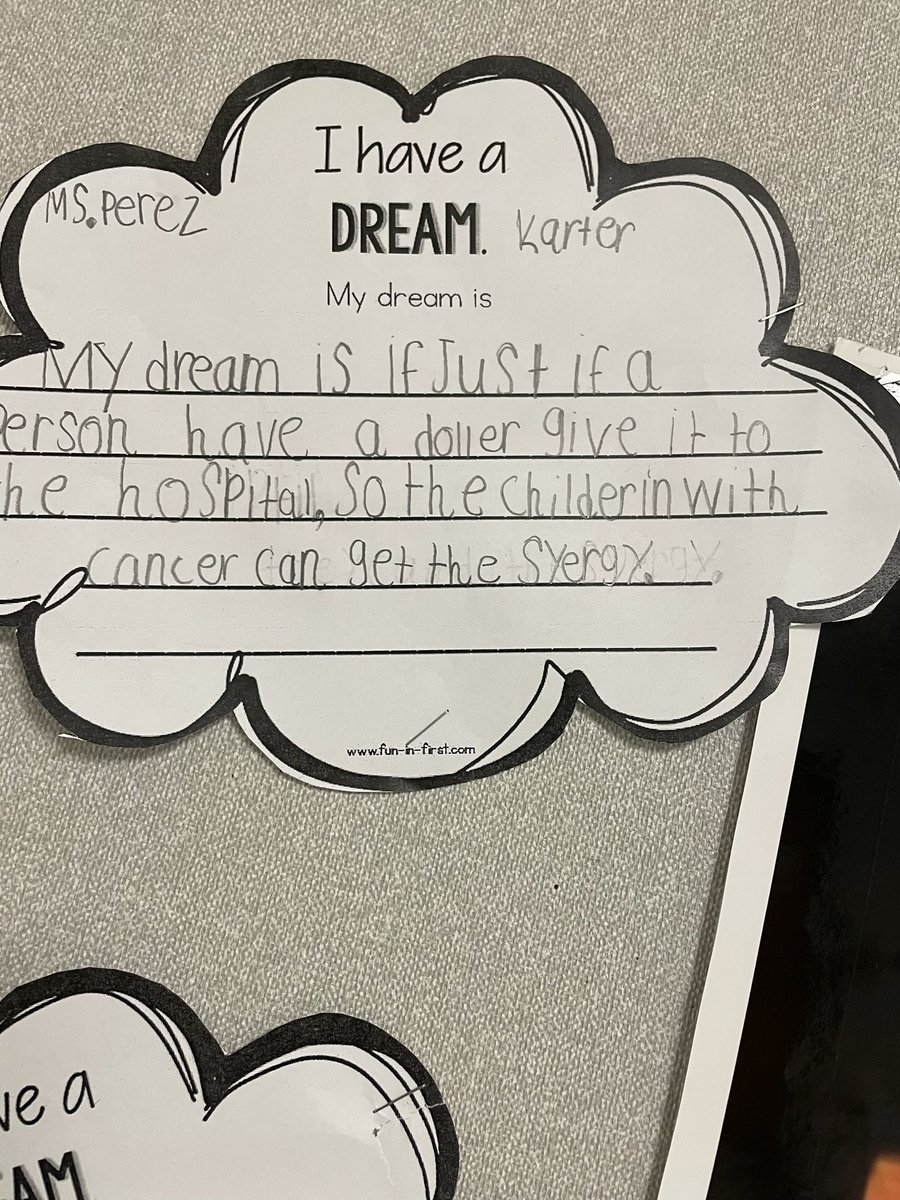 I have a
MS. Perez
DREAM. Karter
My dream is
MY dream is if Just if a
Person have a doller give it to
he hospital, So the Childerin with
cancer can get the Syergy.
www.fun-in-first.com
ve a
EAM